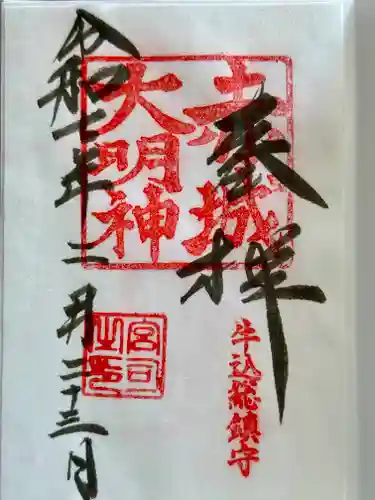 奉拝
赤城
大明神
牛込総鎮守
令和二年二月二十三日
宮司
之印